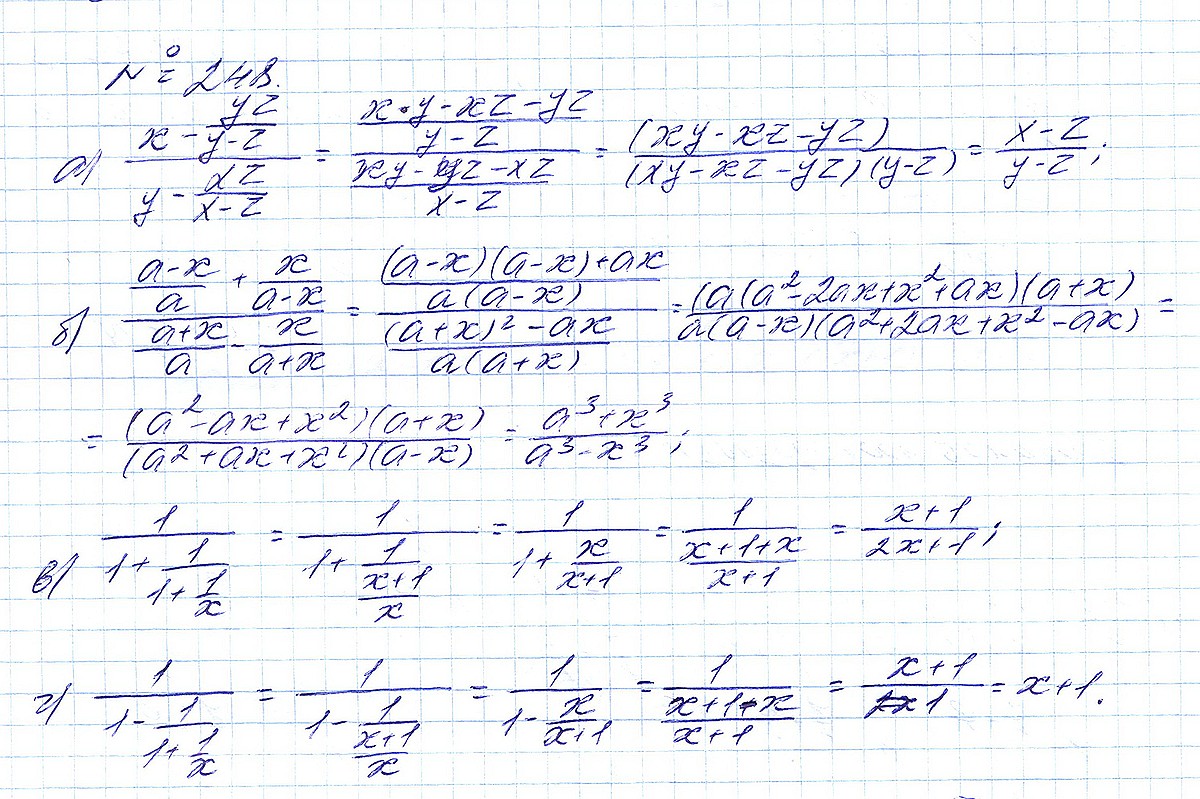 № 248.
а) (x - yz/(y-z))/(y - xz/(x-z)) = ((x·y-xz-yz)/(y-z))/((xy-yz-xz)/(x-z)) = (xy-xz-yz)/((xy-xz-yz)(y-z)) = (x-z)/(y-z);
б) ((a-x)/a + x/(a-x))/((a+x)/a - x/(a+x)) = (((a-x)(a-x)+ax)/(a(a-x)))/(((a+x)²-ax)/(a(a+x))) = (a(a²-2ax+x²+ax)(a+x))/(a(a-x)(a²+2ax+x²-ax)) =
= ((a²-ax+x²)(a+x))/((a²+ax+x²)(a-x)) = (a³+x³)/(a³-x³);
в) 1/(1+1/(1+1/x)) = 1/(1+1/((x+1)/x)) = 1/(1+x/(x+1)) = 1/((x+1+x)/(x+1)) = (x+1)/(2x+1);
г) 1/(1-1/(1+1/x)) = 1/(1-1/((x+1)/x)) = 1/(1-x/(x+1)) = 1/((x+1-x)/(x+1)) = (x+1)/1 = x+1.